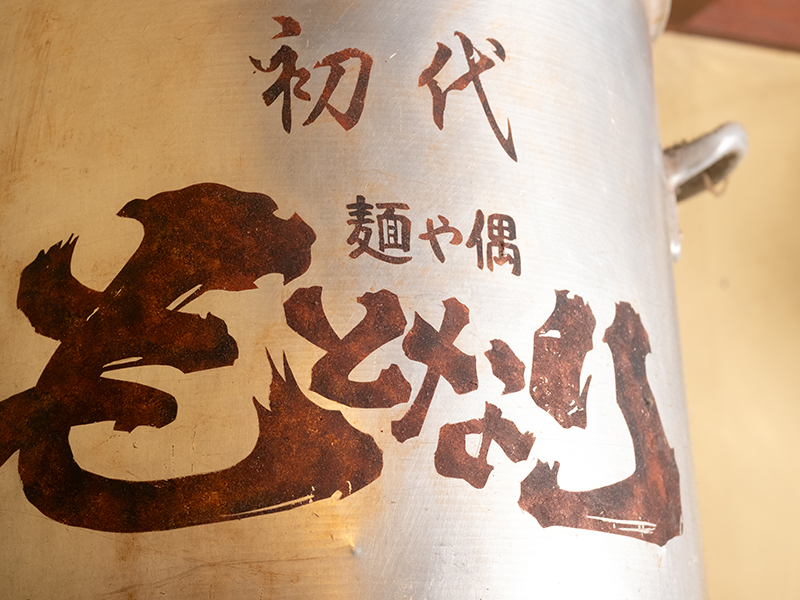 初代
麺や偶
もとなり